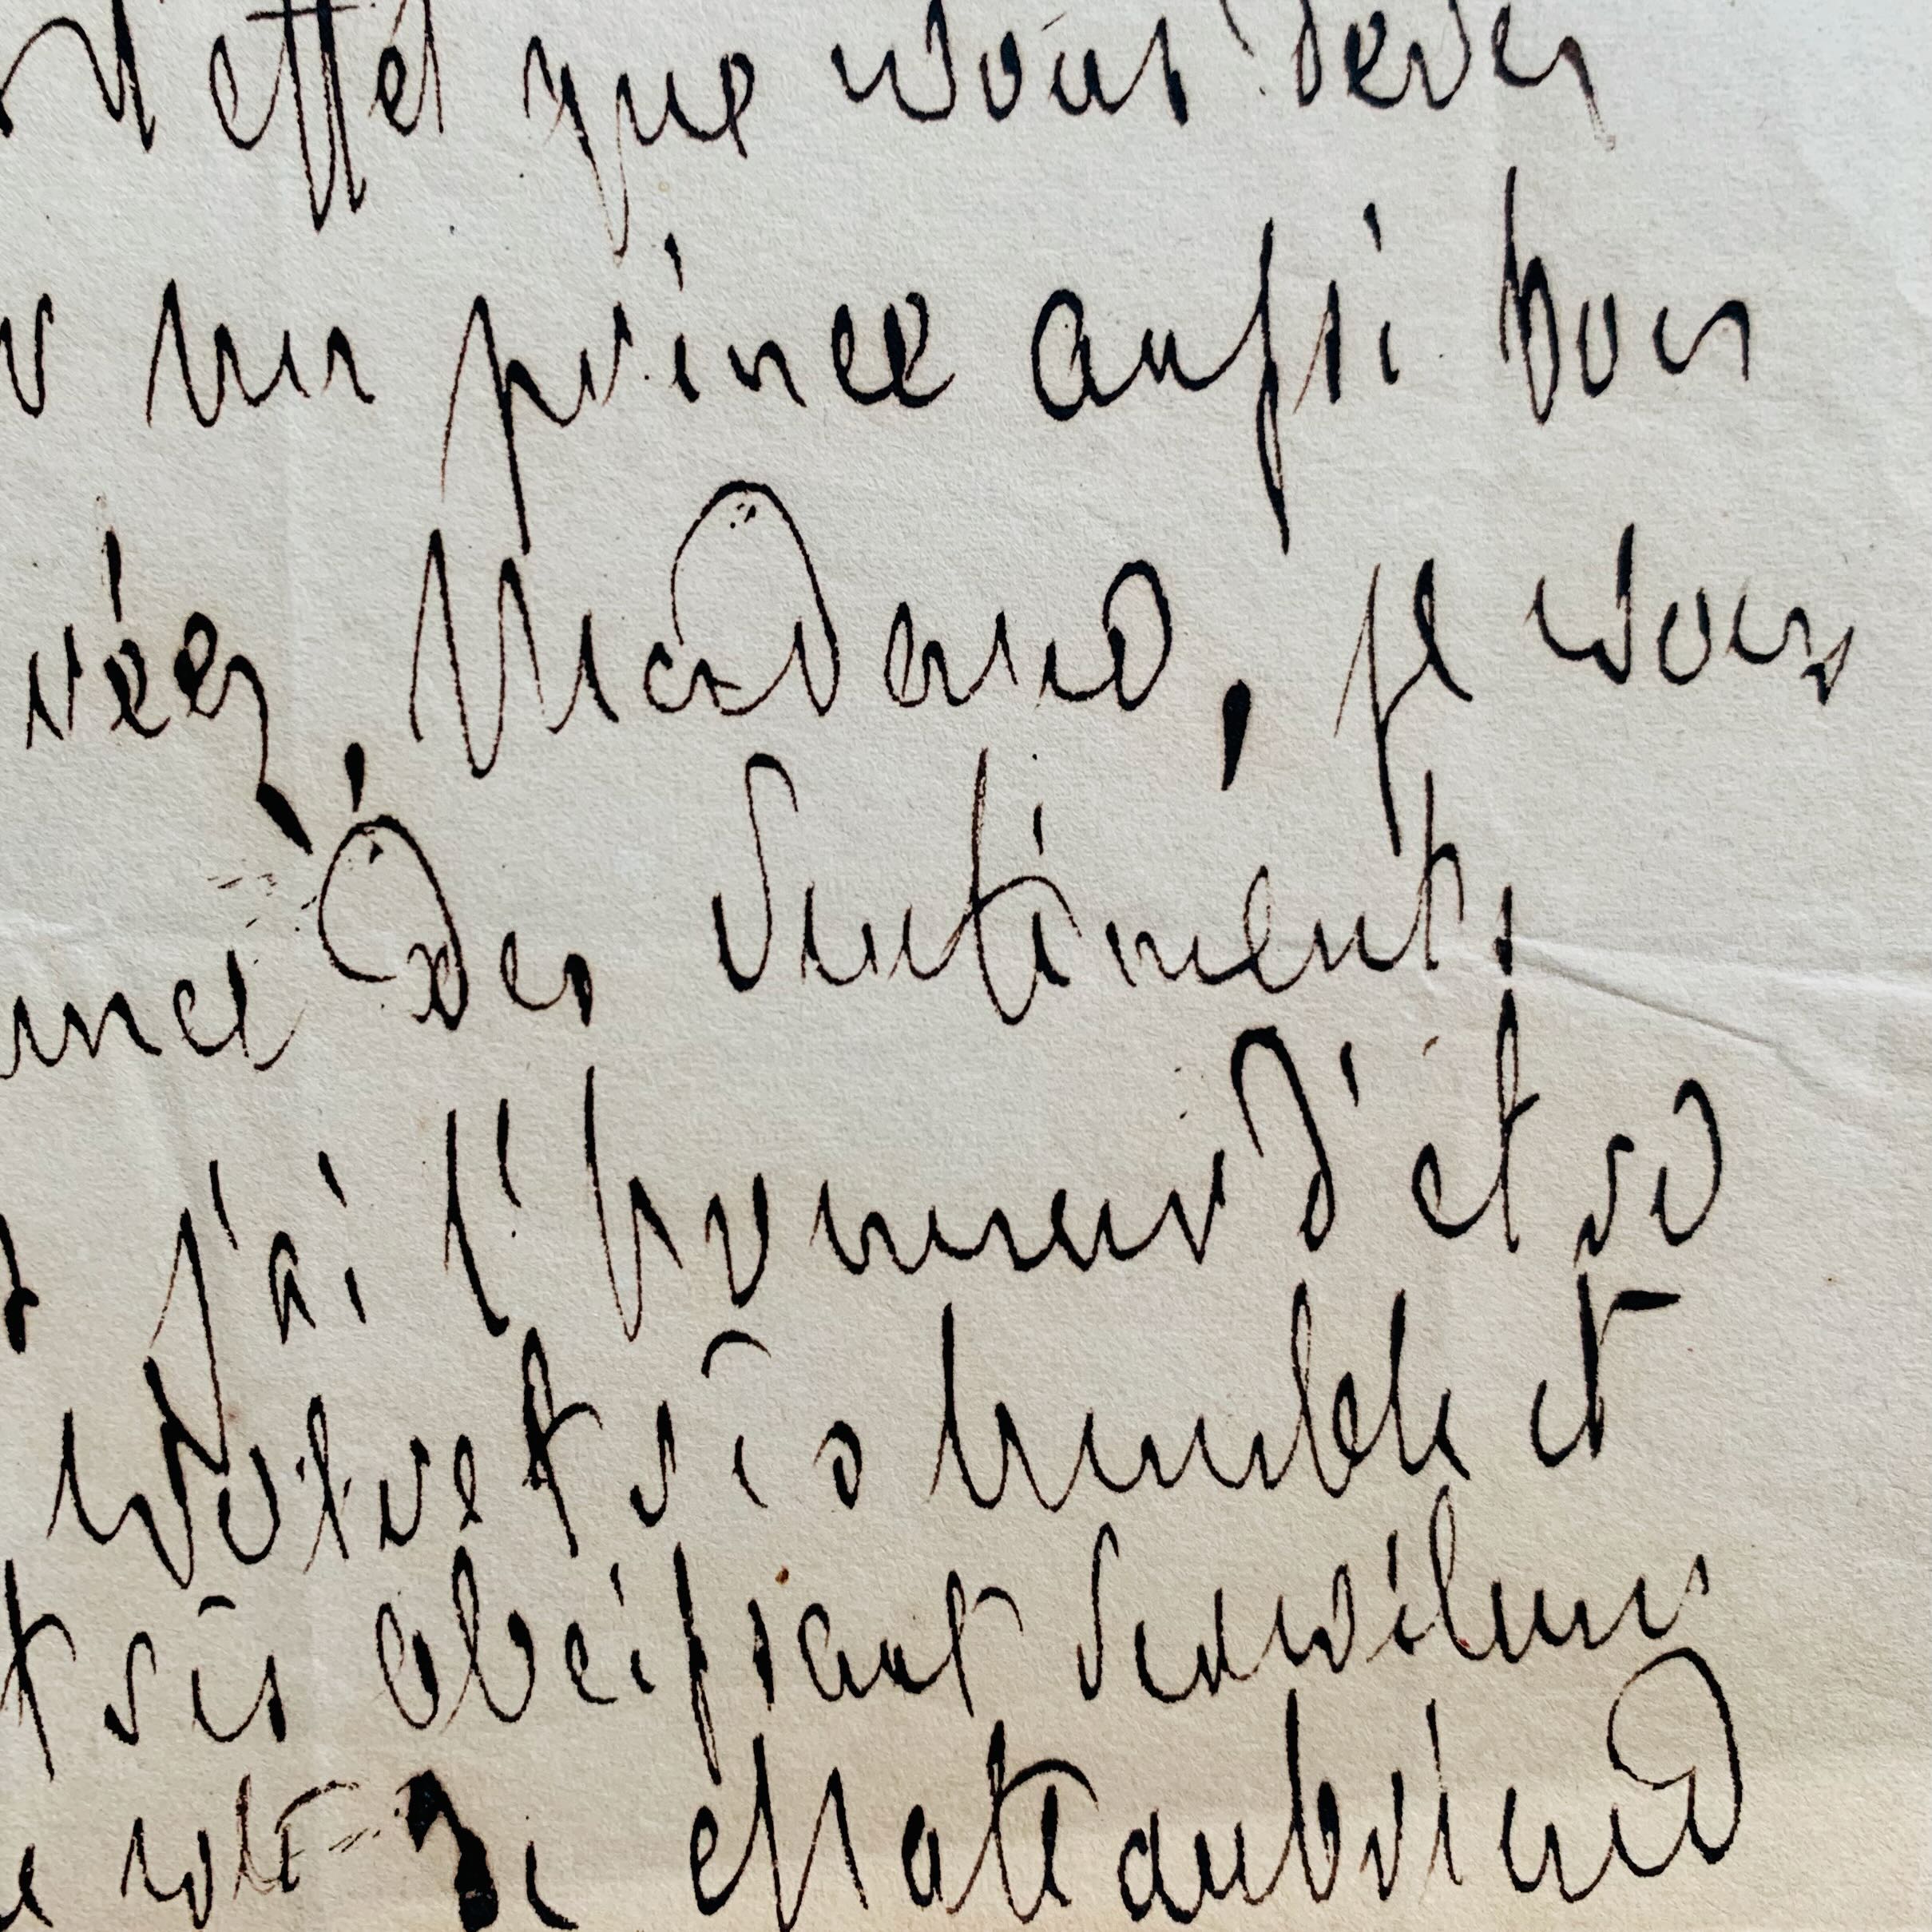 l'effet que vous devez
un prince aussi bon
réez, Madame, je vous
ance des sentiments
j'ai l'honneur d'etre
votre très humble et
très obéissant serviteur
le vte de Chateaubriand